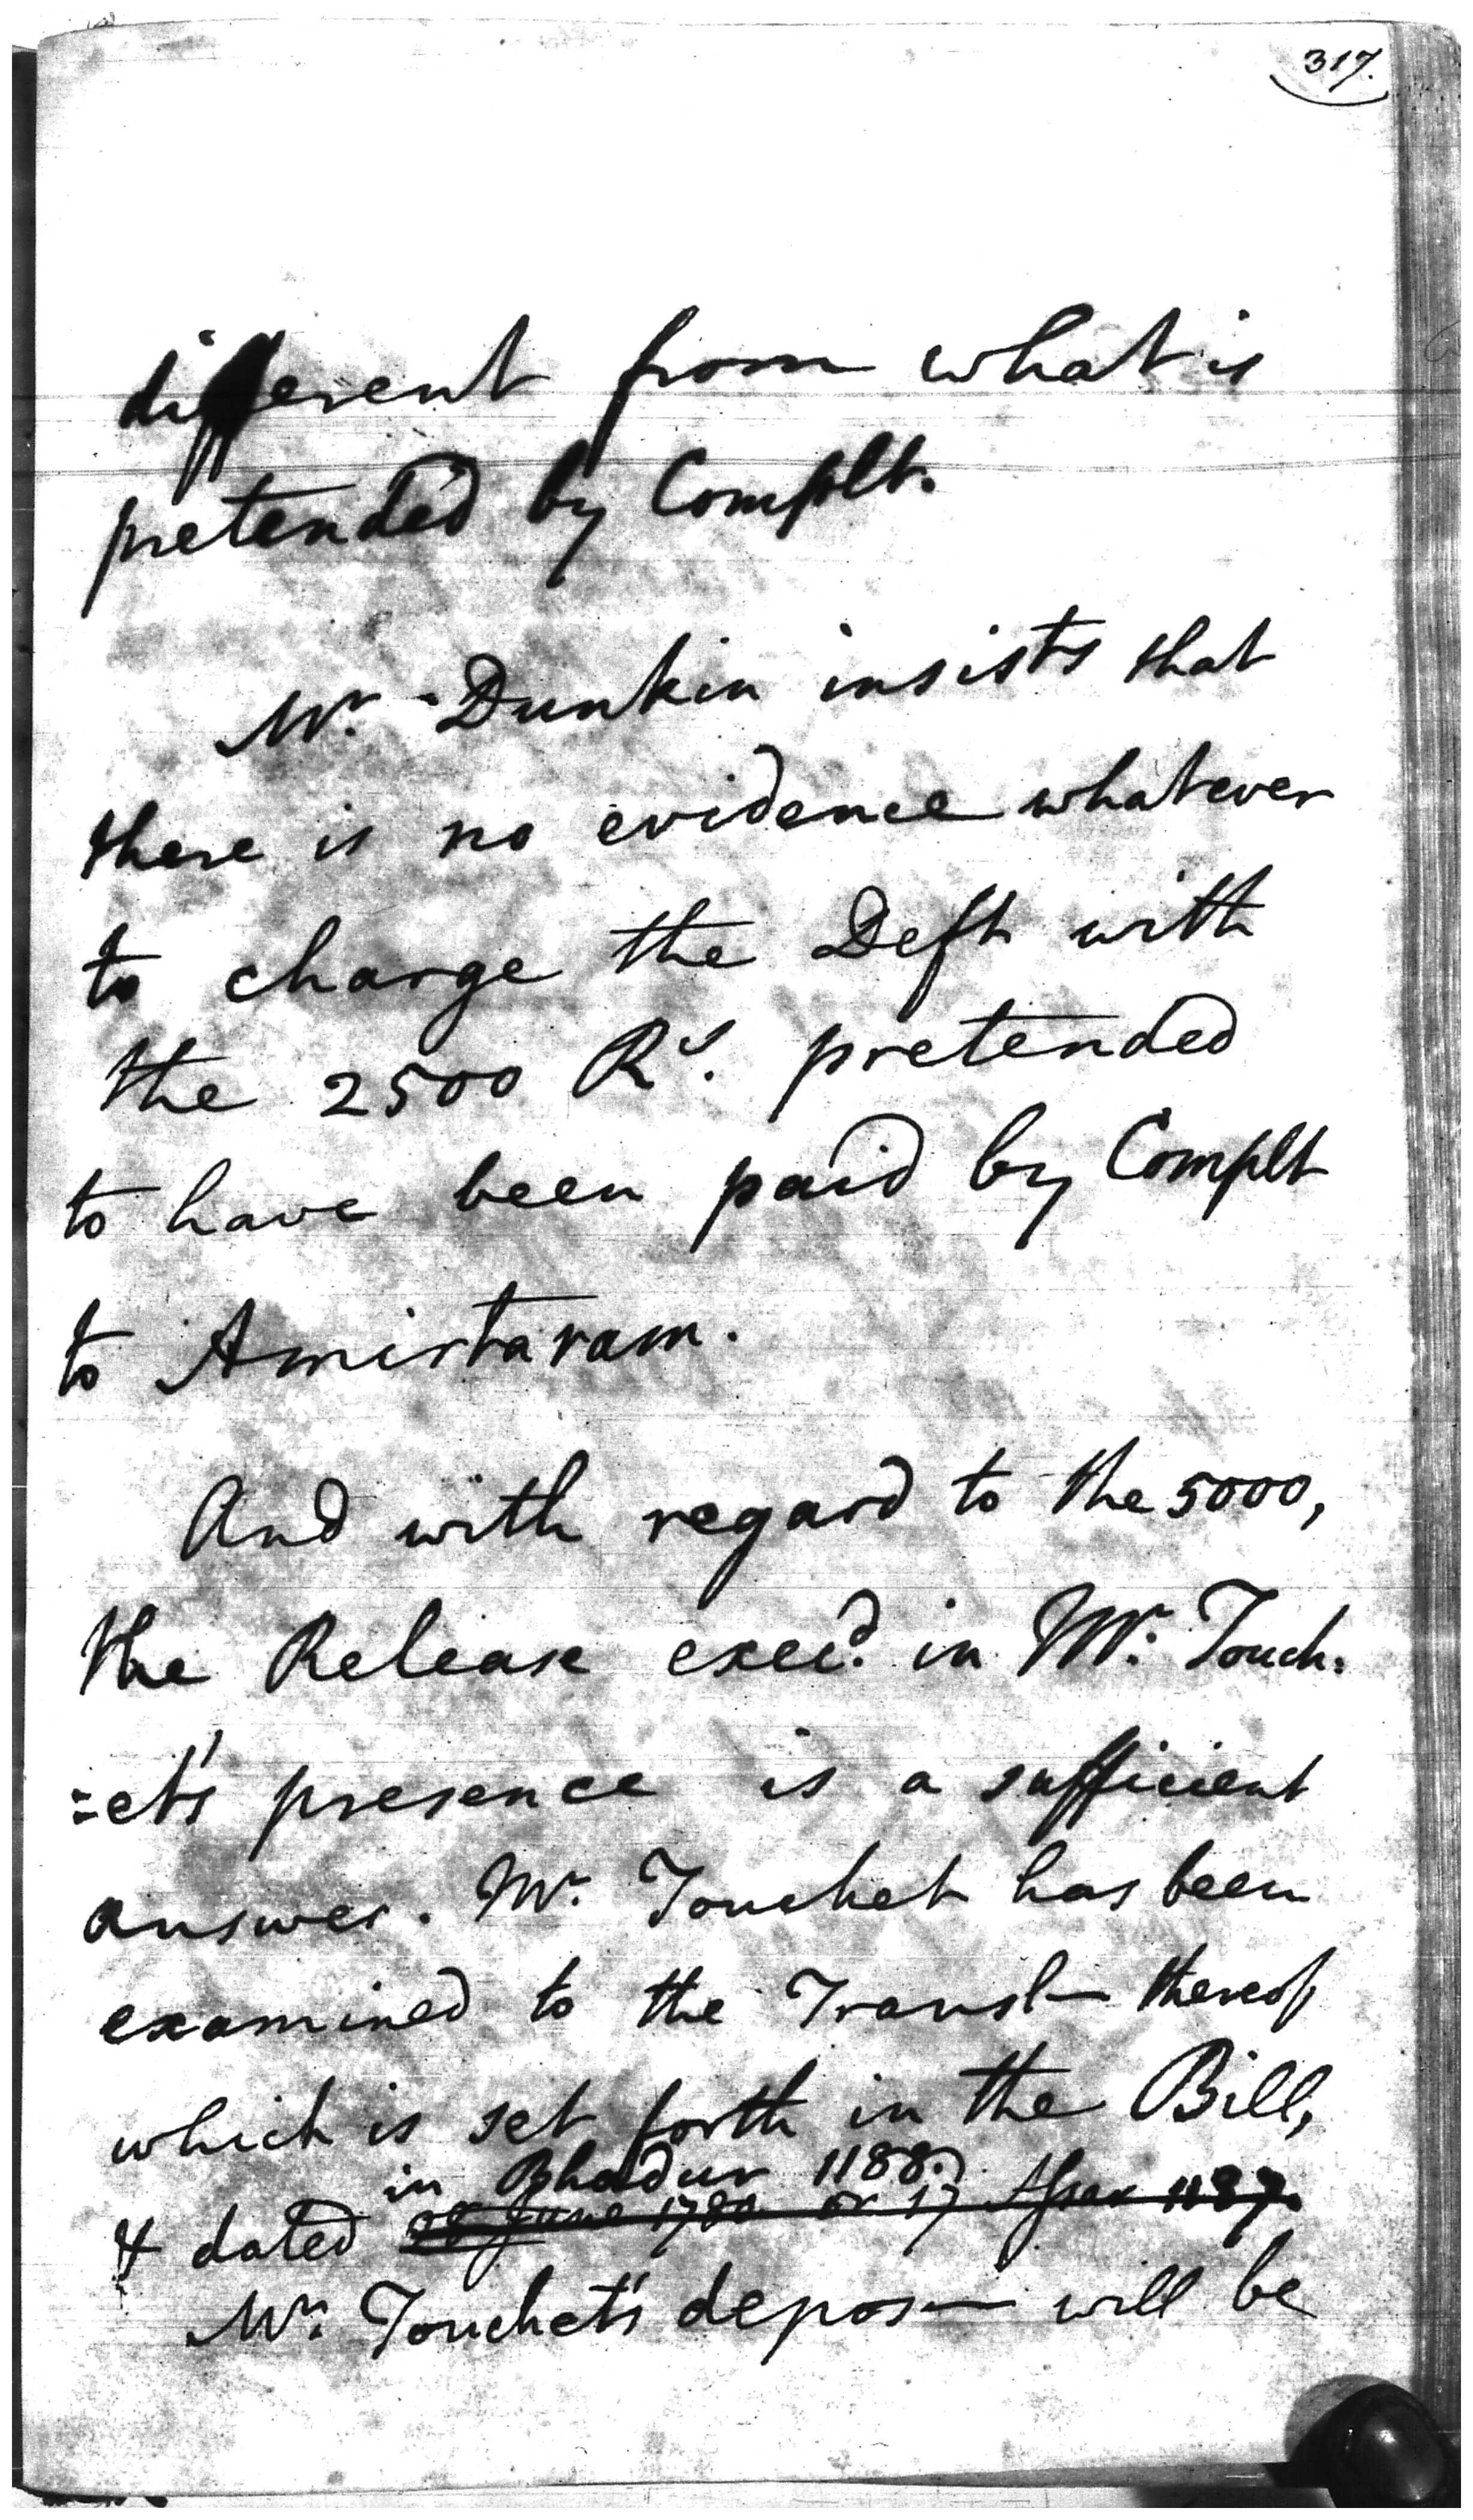 317.
different from what is
pretended by Complt.
Mr. Dunkin insists that
there is no evidence whatever
to charge the Deft with
the 2500 Rs. pretended
to have been paid by Complt
to Amirtaram.
And with regard to the 5000,
the Release execd. in Mr. Touch-
=et's presence is a sufficient
answer. Mr. Touchet has been
examined to the Transl- thereof
which is set forth in the Bill,
in Bhadur 1188.
& dated June 1780 or 17 1187.
Mr. Touchet's depos- will be